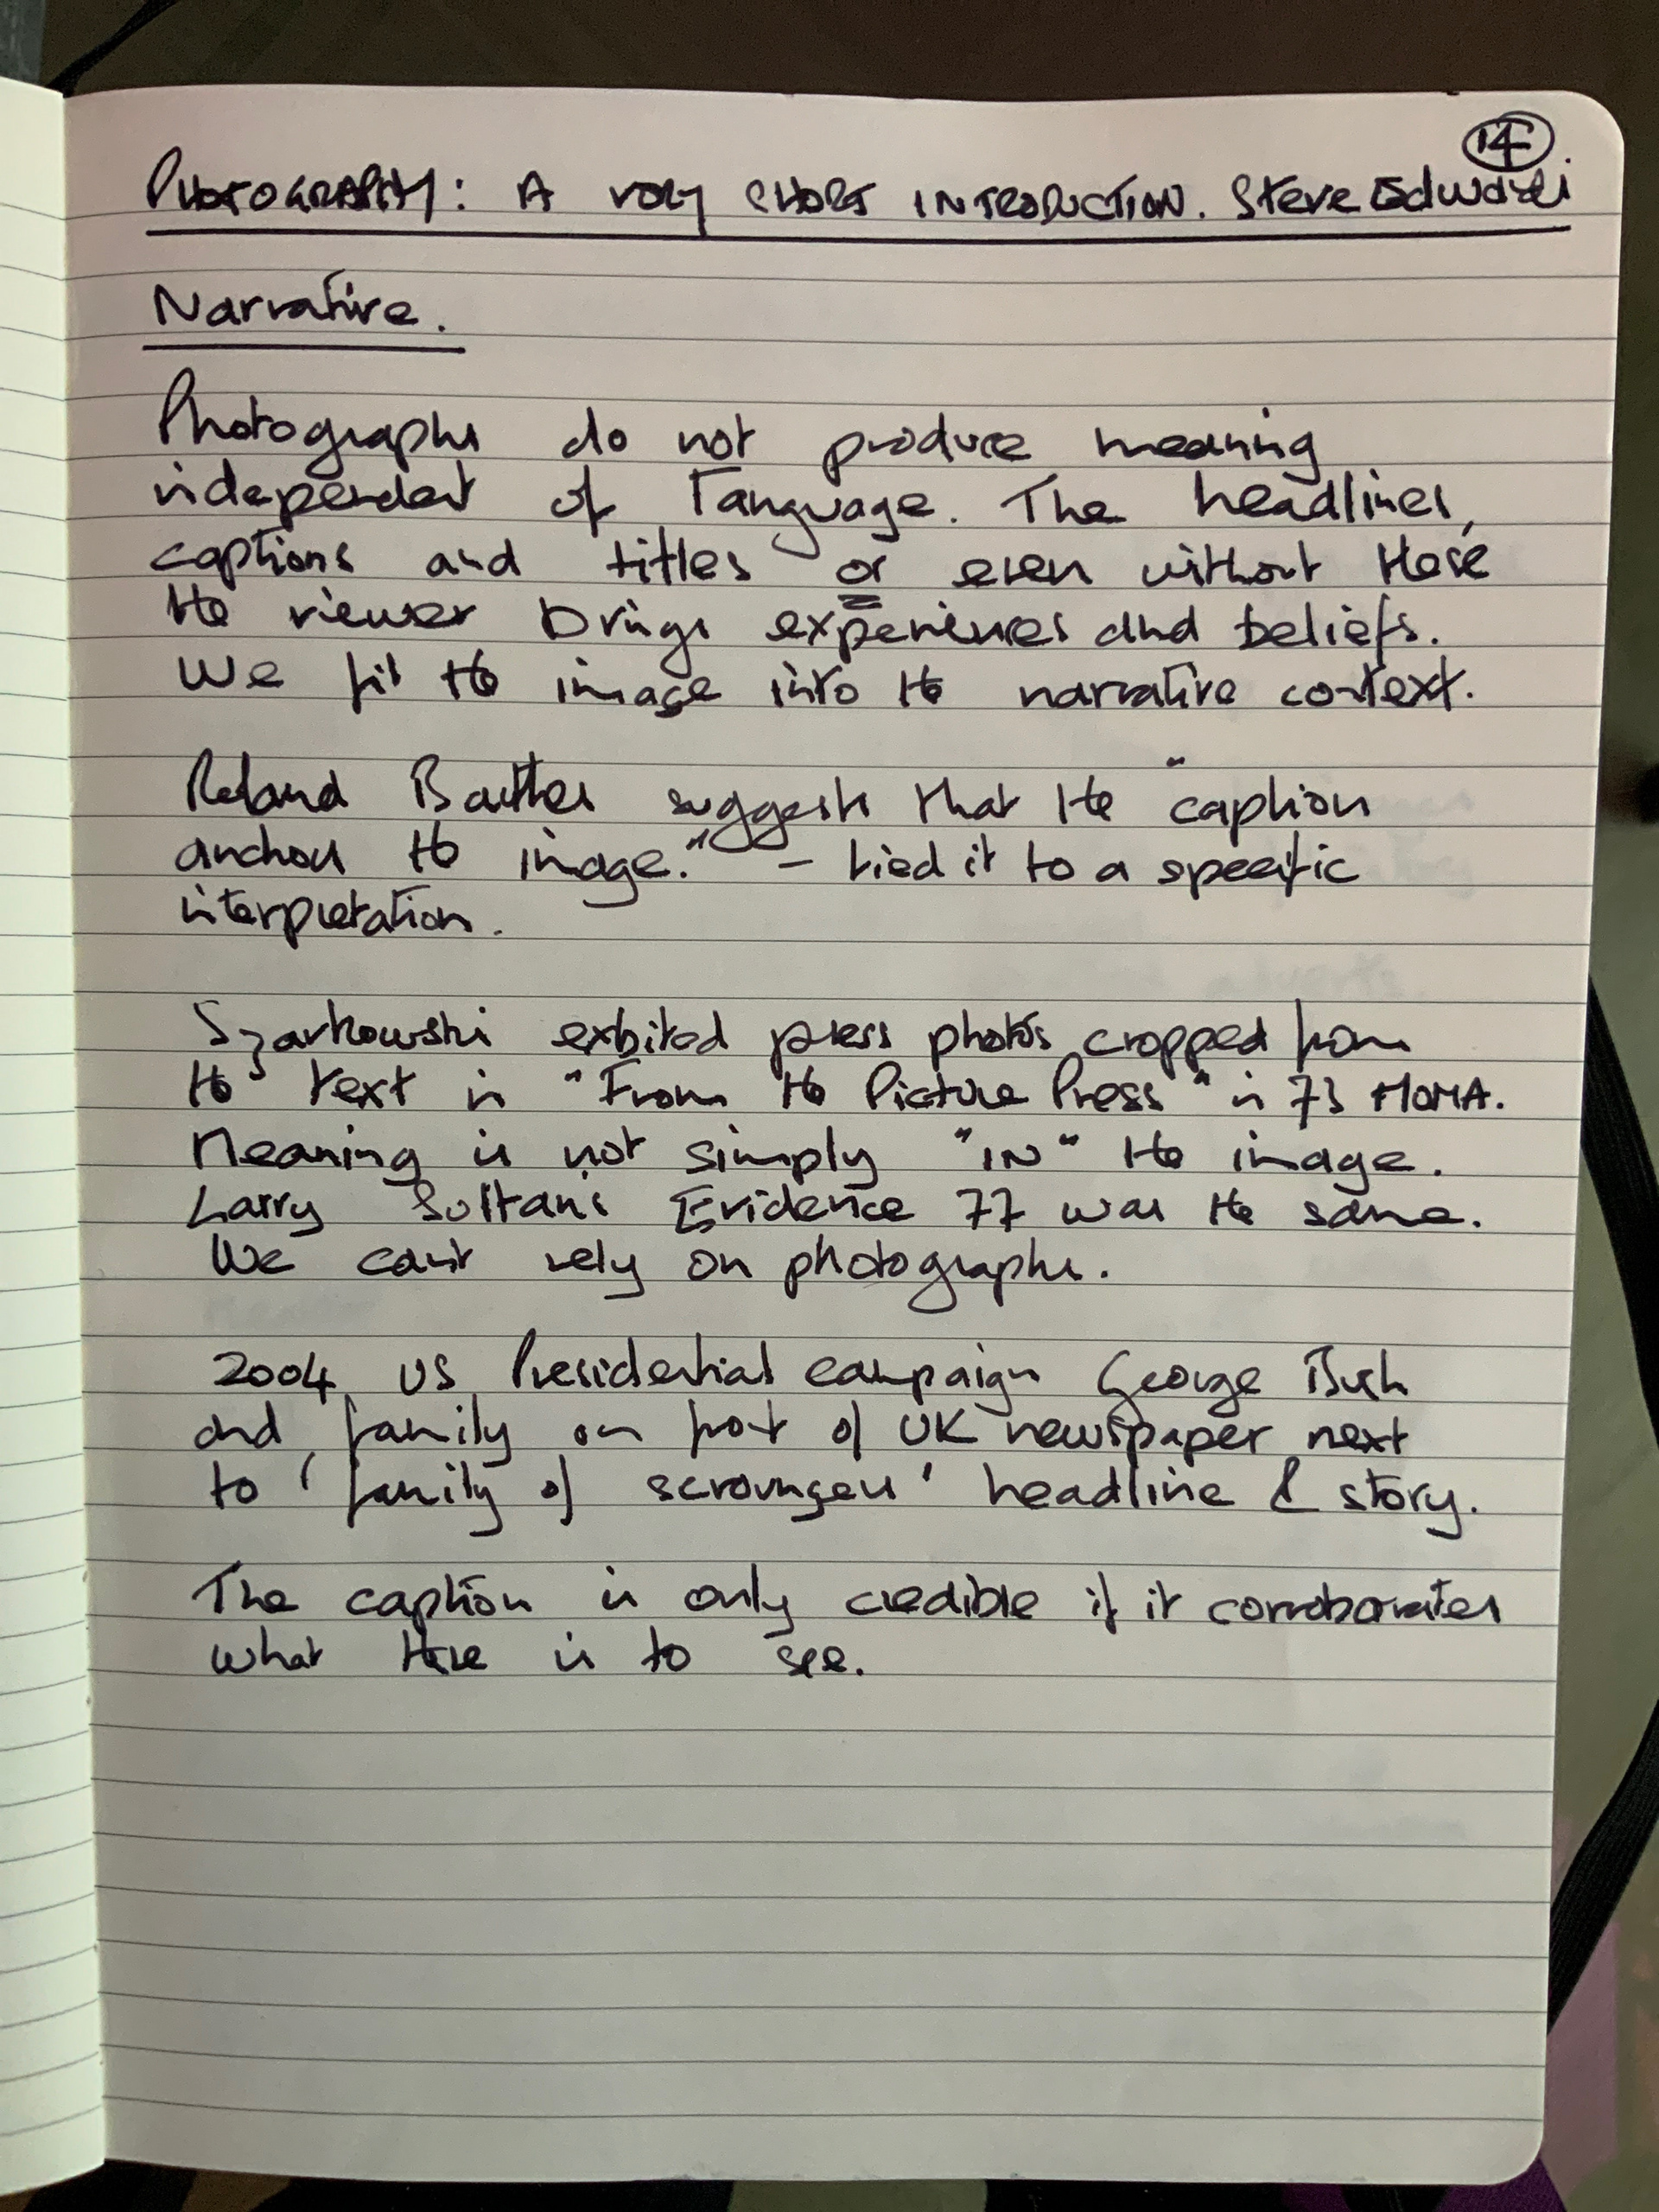 14
PHOTOGRAPHY: A VERY SHORT INTRODUCTION. Steve Edwards.
Narrative.
Photographs do not produce meaning
independent of language. The headlines,
captions and titles or even without these
the viewer brings experiences and beliefs.
We fit the image into the narrative context.
Roland Barthes suggests that the "caption
anchors the image." – tied it to a specific
interpretation.
Szarkowski exbited press photos cropped from
the text in "From the Picture Press" in 73 MOMA.
Meaning is not simply "IN" the image.
Larry Sultan's Evidence 77 was the same.
We can't rely on photographs.
2004 US Presidential campaign George Bush
and family on front of UK newspaper next
to 'family of scroungers' headline & story.
The caption is only credible if it corroborates
what there is to see.